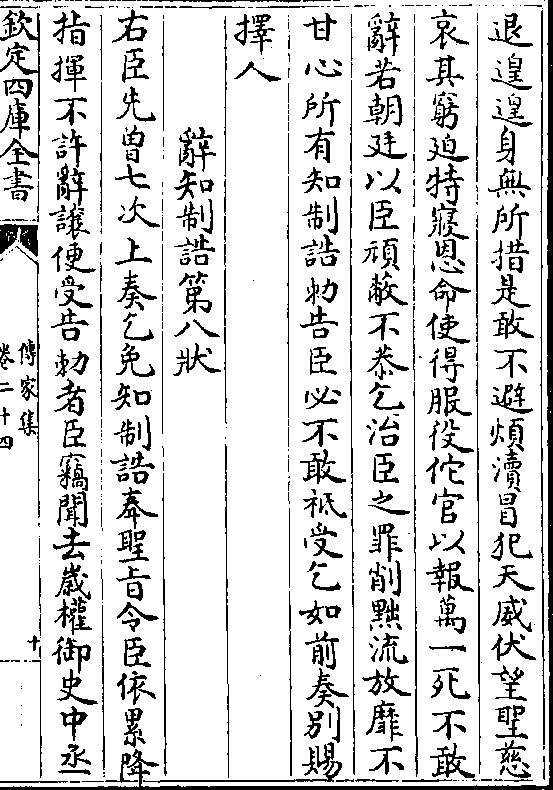 退遑遑身無所措是敢不避煩瀆冒犯天威伏望聖慈
哀其窮迫特寢恩命使得服役佗官以報萬一死不敢
辭若朝廷以臣頑蔽不恭乞治臣之罪削黜流放靡不
甘心所有知制誥勅告臣必不敢祗受乞如前奏别賜
擇人
辭知制誥第八狀
右臣先曽七次上奏乞免知制誥奉聖旨令臣依累降
指揮不許辭讓便受告勅者臣竊聞去嵗權御史中丞
欽定四庫全書
傳家集
卷二十四
十